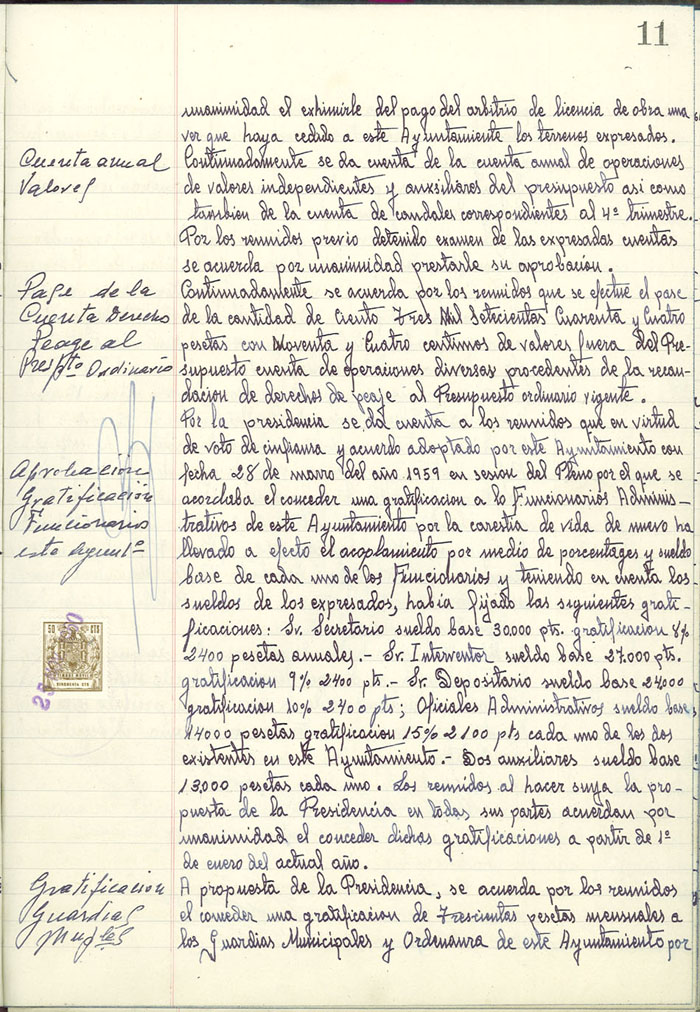 11
unanimidad el eximirle del pago del arbitrio de licencia de obra una
vez que haya cedido a este Ayuntamiento los terrenos expresados.
Cuenta anual
Valores
Continuadamente se da cuenta de la cuenta anual de operaciones
de valores independientes y auxiliares del presupuesto asi como
tambien de la cuenta de caudales correspondientes al 4º trimestre.
Por los reunidos previo detenido examen de las expresadas cuentas
se acuerda por unanimidad prestarle su aprobación.
Page de la
Cuenta Derecho
Peage al
Presptº Ordinario
Continuadamente se acuerda por los reunidos que se efectue el pase
de la cantidad de Ciento Tres Mil Setecientas Cuarenta y Cuatro
pesetas con Noventa y Cuatro centimos de valores fuera del Pre-
supuesto cuenta de operaciones diversas procedentes de la recau-
dacion de derechos de peaje al Presupuesto ordinario vigente.
Aprobación
Gratificación
Funcionarios
este Ayuntº
Por la presidencia se da cuenta a los reunidos que en virtud
de voto de cinfianza y acuerdo adoptado por este Ayuntamiento con
fecha 28 de marzo del año 1959 en sesion del Pleno por el que se
acordaba el conceder una gratificacion a lo Funcionarios Adminis-
trativos de este Ayuntamiento por la carestia de vida de nuevo ha
llevado a efecto el acoplamiento por medio de porcentages y sueldo
base de cada uno de los Funcionarios y teniendo en cuenta los
sueldos de los expresados, había fijado las siguientes grati-
ficaciones: Sr. Secretario sueldo base 30,000 pts. gratificacion 8%
2400 pesetas anuales.- Sr. Interventor sueldo base 27.000 pts.
gratificacion 9% 2400 pt.- Sr. Depositario sueldo base 24000
gratificacion 10% 2400 pts; Oficiales Administrativos sueldo base
14000 pesetas gratificacion 15% 2100 pts cada uno de los dos
existentes en este Ayuntamiento.- Dos auxiliares sueldo base
13,000 pesetas cada uno. Los reunidos al hacer suya la pro-
puesta de la Presidencia en todas sus partes acuerdan por
unanimidad el conceder dichas gratificaciones a partir de 1º
de enero del actual año.
50 CTS
Gratificacion
Guardias
Muplés
A propuesta de la Presidencia, se acuerda por los reunidos
el conceder una gratificacion de Trescientas pesetas mensuales a
los Guardias Municipales y Ordenanza de este Ayuntamiento por